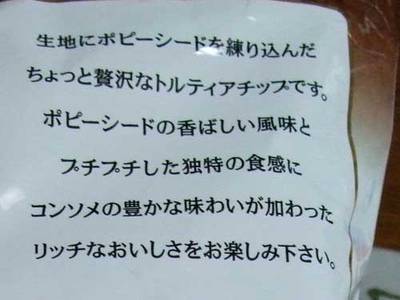 生地にポピーシードを練り込んだ
ちょっと贅沢なトルティアチップです。
ポピーシードの香ばしい風味と
プチプチした独特の食感に
コンソメの豊かな味わいが加わった
リッチなおいしさをお楽しみ下さい。